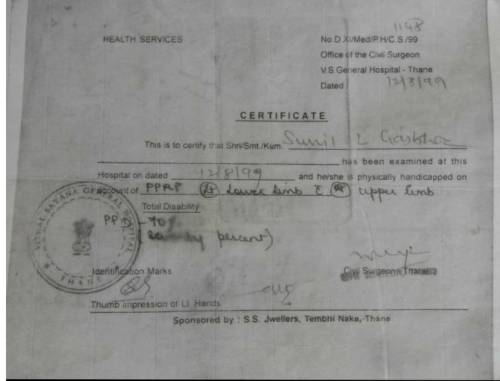 1148
HEALTH SERVICES No.D.XI/Med/P.H/C.S./99
Office of the Civil Surgeon
V.S General Hospital - Thane
Dated 12/8/99
CERTIFICATE
This is to certify that Shri/Smt./Kum. Sunil L
has been examined at this
Hospital on dated 12/8/99 and he/she is physically handicapped on
account of PPRP Lower limb & upper limb
Total Disability
percent)
Identification Marks Civil Surgeon Thane
Thumb impression of Lt. Hands
Sponsored by : S.S. Jwellers, Tembhi Naka, Thane
THANE